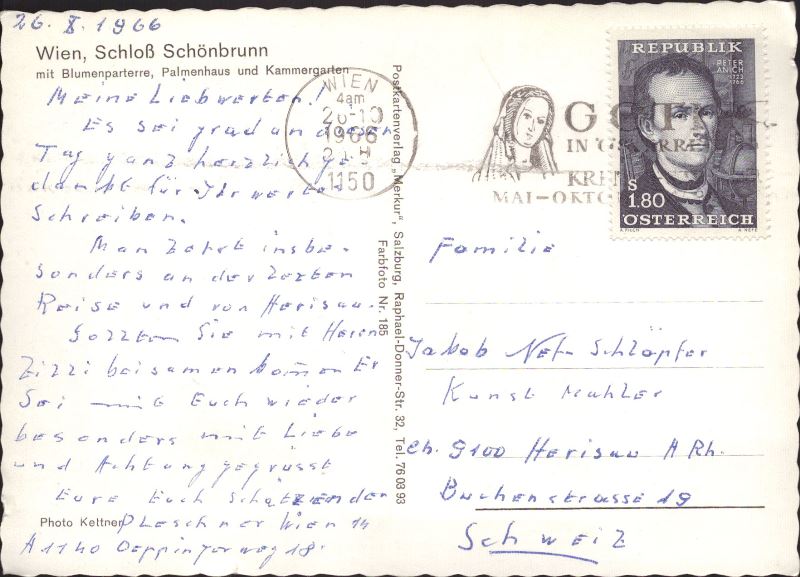 26. X. 1966
Wien, Schloß Schönbrunn
mit Blumenparterre, Palmenhaus und Kammergarten
Meine Liebwerten!
Es sei grad an diesen
Tag ganz herzlich ge-
dankt für Ihr wertes
Schreiben.
Man Zehrt insbe-
sonders an der Lezten
Reise und von Herisau.
Sollten Sie mit Herrn
Zilli beisamen komen Er
Sei mit Euch wieder
besonders mit Liebe
und Achtung gegrüsst
Eure Euch Schätzenden
Photo Kettner
Pleschner Wien 14
A1140 Oeppingerweg 18.
Postkartenverlag „Merkur", Salzburg, Raphael-Donner-Str. 32, Tel. 76 03 93
Farbfoto Nr. 185
WIEN
26·10
1966
1150
IN
MAI-OKTO
REPUBLIK
PETER
ANICH
1723
1766
S
1.80
ÖSTERREICH
A. PILCH
A. NEFE
Familie
Jakob Nef-Schläpfer
Kunst Mahler
Ch. 9100 Herisau A Rh.
Buchenstrasse 19
Schweiz